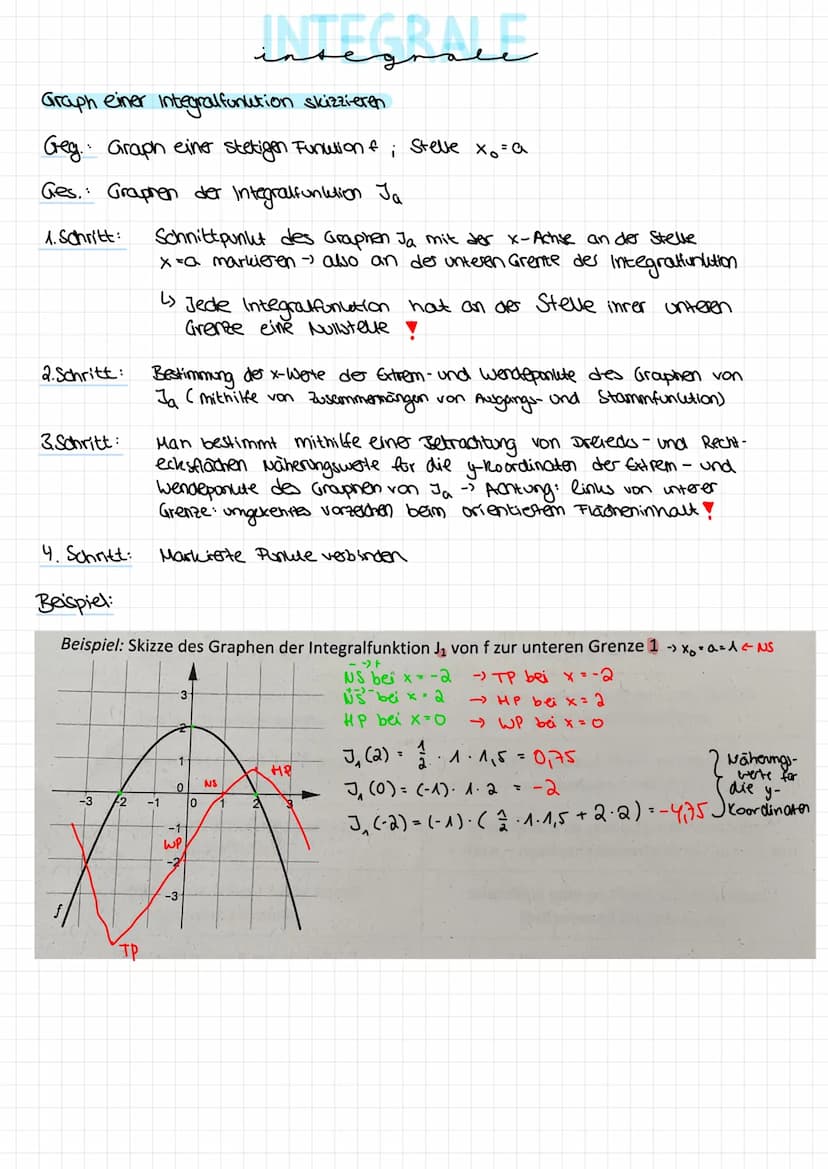 INTEGRALE
integrale
Graph einer Integralfunktion skizzieren
Geg.: Graph einer stetigen Funktion f ; Stelle x₀=a
Ges.: Graphen der Integralfunktion Ja
1. Schritt: Schnittpunkt des Graphen Ja mit der x-Achse an der Stelle
x=a markieren → also an der unteren Grenze der Integralfunktion
↳ Jede Integralfunktion hat an der Stelle ihrer unteren
Grenze eine Nullstelle !
2. Schritt: Bestimmung der x-Werte der Extrem- und Wendepunkte des Graphen von
Ja (mithilfe von Zusammenhängen von Ausgangs- und Stammfunktion)
3. Schritt: Man bestimmt mithilfe einer Betrachtung von Dreiecks- und Recht-
ecksflächen Näherungswerte für die y-Koordinaten der Extrem- und
Wendepunkte des Graphen von Ja → Achtung: links von unterer
Grenze: umgekehrtes Vorzeichen beim orientierten Flächeninhalt !
4. Schritt: Markierte Punkte verbinden
Beispiel:
Beispiel: Skizze des Graphen der Integralfunktion J₁ von f zur unteren Grenze 1 → x₀=a=1 ← NS
- → +
NS bei x=-2 → TP bei x=-2
+ → -
NS bei x=2 → HP bei x=2
HP bei x=0 → WP bei x=0
J₁(2) = 1/2 · 1 · 1,5 = 0,75
J₁(0) = (-1) · 1 · 2 = -2
J₁(-2) = (-1) · (1/2 · 1 · 1,5 + 2 · 2) = -4,75
Näherungs-
werte für
die y-
Koordinaten
3
2
1
0
NS
HP
-3 -2 -1 0 1 2 3
-1
WP
-2
-3
f
TP